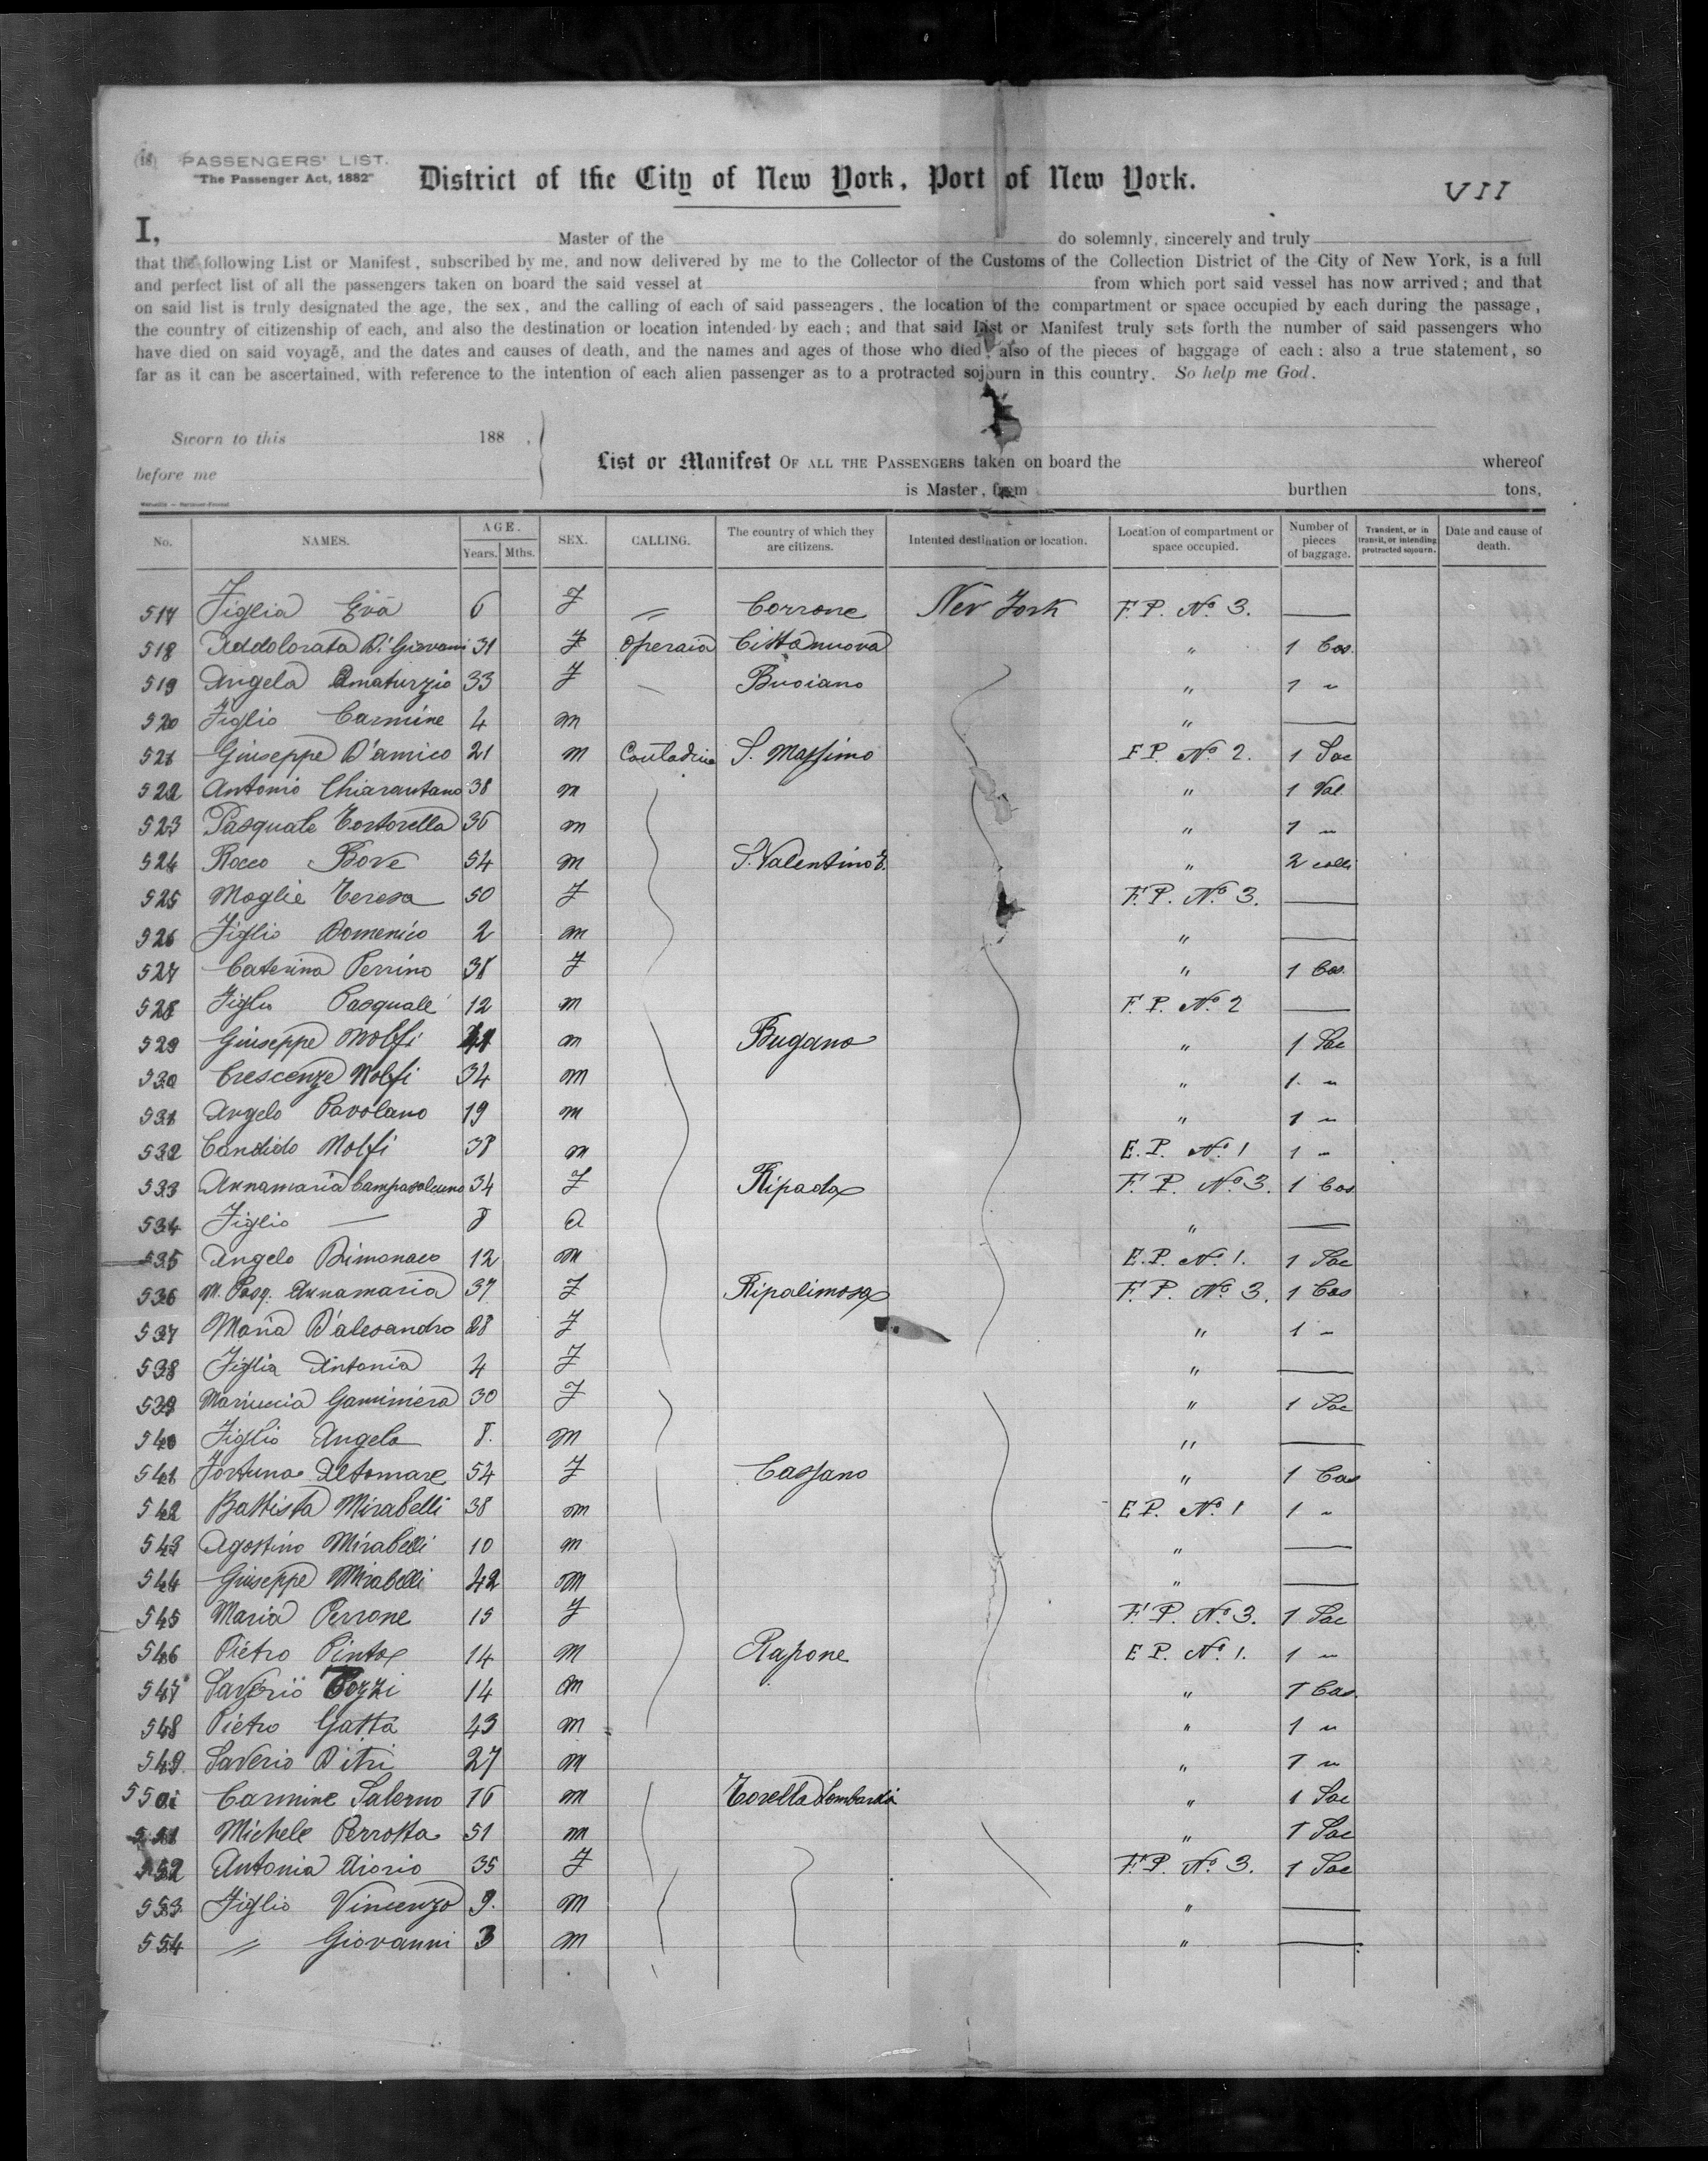 (18) PASSENGERS' LIST.
"The Passenger Act, 1882"
District of the City of New York, Port of New York.
VII
I, Master of the do solemnly, sincerely and truly
that the following List or Manifest, subscribed by me, and now delivered by me to the Collector of the Customs of the Collection District of the City of New York, is a full
and perfect list of all the passengers taken on board the said vessel at from which port said vessel has now arrived; and that
on said list is truly designated the age, the sex, and the calling of each of said passengers, the location of the compartment or space occupied by each during the passage,
the country of citizenship of each, and also the destination or location intended by each; and that said List or Manifest truly sets forth the number of said passengers who
have died on said voyage, and the dates and causes of death, and the names and ages of those who died; also of the pieces of baggage of each: also a true statement, so
far as it can be ascertained, with reference to the intention of each alien passenger as to a protracted sojourn in this country. So help me God.
Sworn to this 188 .
before me
List or Manifest OF ALL THE PASSENGERS taken on board the whereof
is Master, from burthen tons,
No. NAMES. AGE. Years. Mths. SEX. CALLING. The country of which they are citizens. Intended destination or location. Location of compartment or space occupied. Number of pieces of baggage. Transient, or in transit, or intending protracted sojourn. Date and cause of death.
517 Figlia Eva 6 F " Corrone New York F.P. No 3. —
518 Addolorata Di Giovanni 31 F Operaia Cittanuova " 1 Cas.
519 Angela Amaturzio 33 F — Buoiano " 1 "
520 Figlio Carmine 4 m " —
521 Giuseppe D'amico 21 m Contadino S. Massimo F.P. No 2. 1 Sac
522 Antonio Chiarantano 38 m " 1 Val.
523 Pasquale Tortorella 36 m " 1 "
524 Rocco Bove 54 m S. Valentino T. " 2 colli
525 Moglie Teresa 50 F F.P. No 3. —
526 Figlio Domenico 2 m " —
527 Caterina Perrino 38 F " 1 Cas.
528 Figlio Pasquale 12 m F.P. No 2 —
529 Giuseppe Molfi m Bugano " 1 Sac
530 Crescenze Molfi 34 m " 1. "
531 Angelo Pavolano 19 m " 1 "
532 Candido Molfi 38 m E.P. No 1 1 "
533 Annamaria 34 F Ripada F.P. No 3. 1 Cas
534 Figlio — 8 a " —
535 Angelo Dimonaco 12 m E.P. No 1. 1 Sac
536 M. Pasq. Annamaria 37 F Ripalimosa F.P. No 3. 1 Cas
537 Maria D'alesandro 28 F " 1 "
538 Figlia Antonia 4 F " —
539 Mariuccia 30 F " 1 Sac
540 Figlio Angelo 8. m " —
541 Fortuna Altomare 54 F Cassano " 1 Cas
542 Battista Mirabelli 38 m E P. No 1 1 "
543 Agostino Mirabelli 10 m " —
544 Giuseppe Mirabelli 42 m " —
545 Maria Perrone 15 F F.P. No 3. 1 Sac
546 Pietro Pinto 14 m Rapone E P. No 1. 1 "
547 Saverio Tozzi 14 m " 1 Cas.
548 Pietro Gatta 43 m " 1 "
549 Saverio Pitri 27 m " 1 "
550 Carmine Salerno 16 m Torella Lombardi " 1 Sac
551 Michele Perrotta 51 m " 1 Sac
552 Antonia Aiorio 35 F F.P. No 3. 1 Sac
553 Figlio Vincenzo 9. m " —
554 " Giovanni 3 m " —